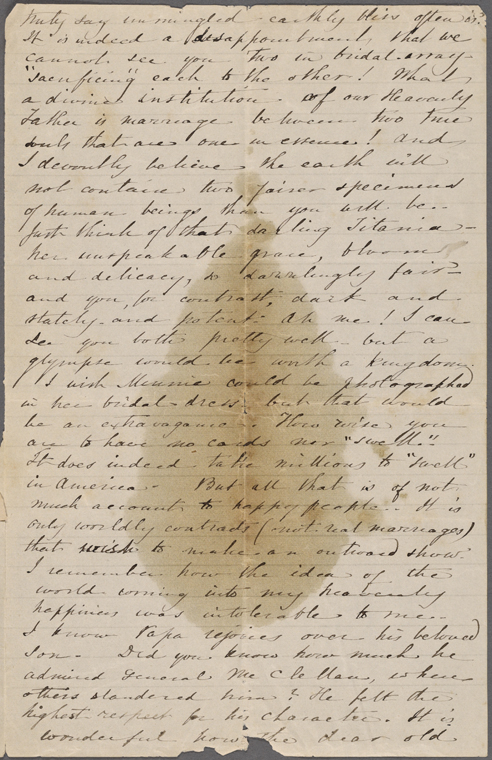 truly say unmingled earthly bliss often is?
It is indeed a disappointment that we
cannot see you two in bridal array
"sacrificing" each to the other! What
a divine institution of our Heavenly
Father is marriage between two true
souls that are one in essence! And
I devoutly believe the earth will
not contain two fairer specimens
of human beings than you will be.
Just think of that darling Titania—
her unspeakable grace, bloom
and delicacy, so dazzlingly fair—
and you, for contrast, dark and
stately and potent. Ah me! I can
see you both pretty well—but a
glympse would be worth a kingdom.
I wish Minnie could be photographed
in her bridal dress, but that would
be an extravagance. How wise you
are to have no cards nor "swell"!
It does indeed take millions to "swell"
in America. But all that is of not
much account to happy people. It is
only worldly contracts (not real marriages)
that wish to make an outward show.
I remember how the idea of the
world coming into my heavenly
happiness was intolerable to me.
I know Papa rejoices over his beloved
son. Did you know how much he
admired General McClellan, when
others slandered him? He felt the
highest respect for his character. It is
wonderful how the dear old